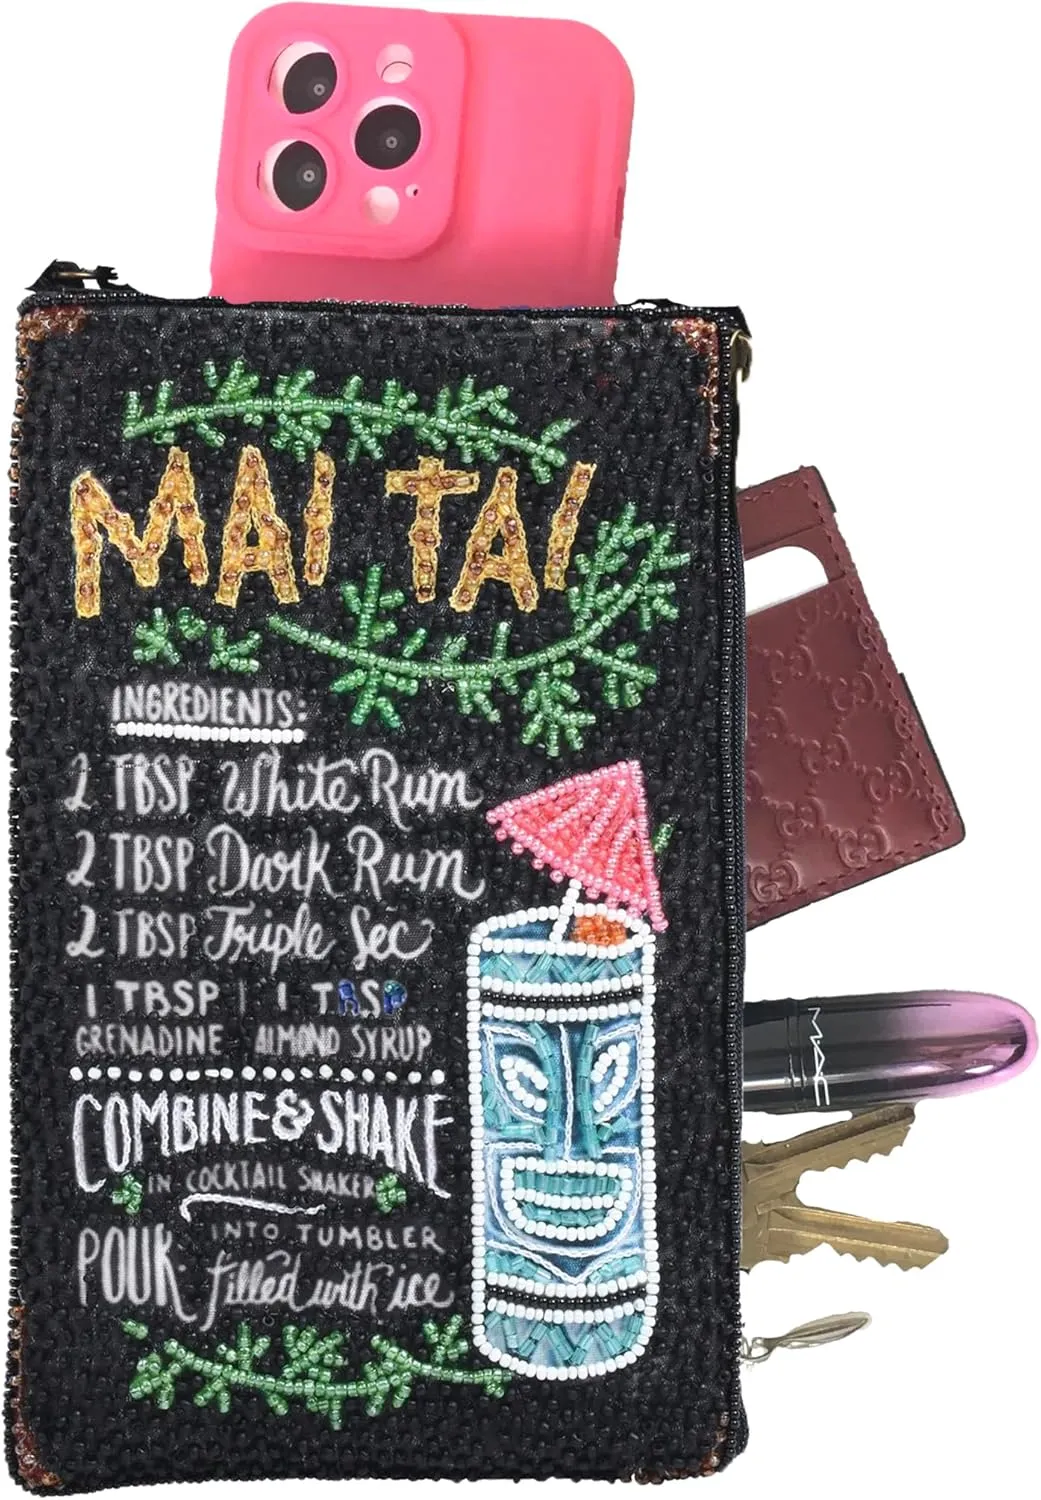 MAI TAI
INGREDIENTS:
2 TBSP White Rum
2 TBSP Dark Rum
2 TBSP Triple Sec
1 TBSP | 1 TBSP
GRENADINE ALMOND SYRUP
COMBINE & SHAKE
IN COCKTAIL SHAKER
POUR INTO TUMBLER
filled with ice
MAC